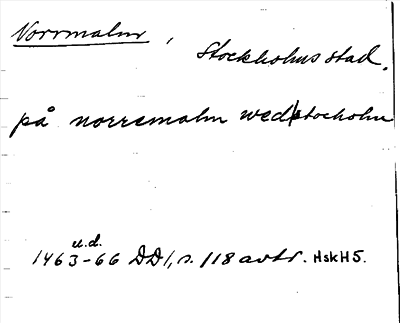 Norrmalm, Stockholms stad.
på norremalm wedh stocholm
u.d.
1463-66 DD1, s. 118 avtr. HskH5.